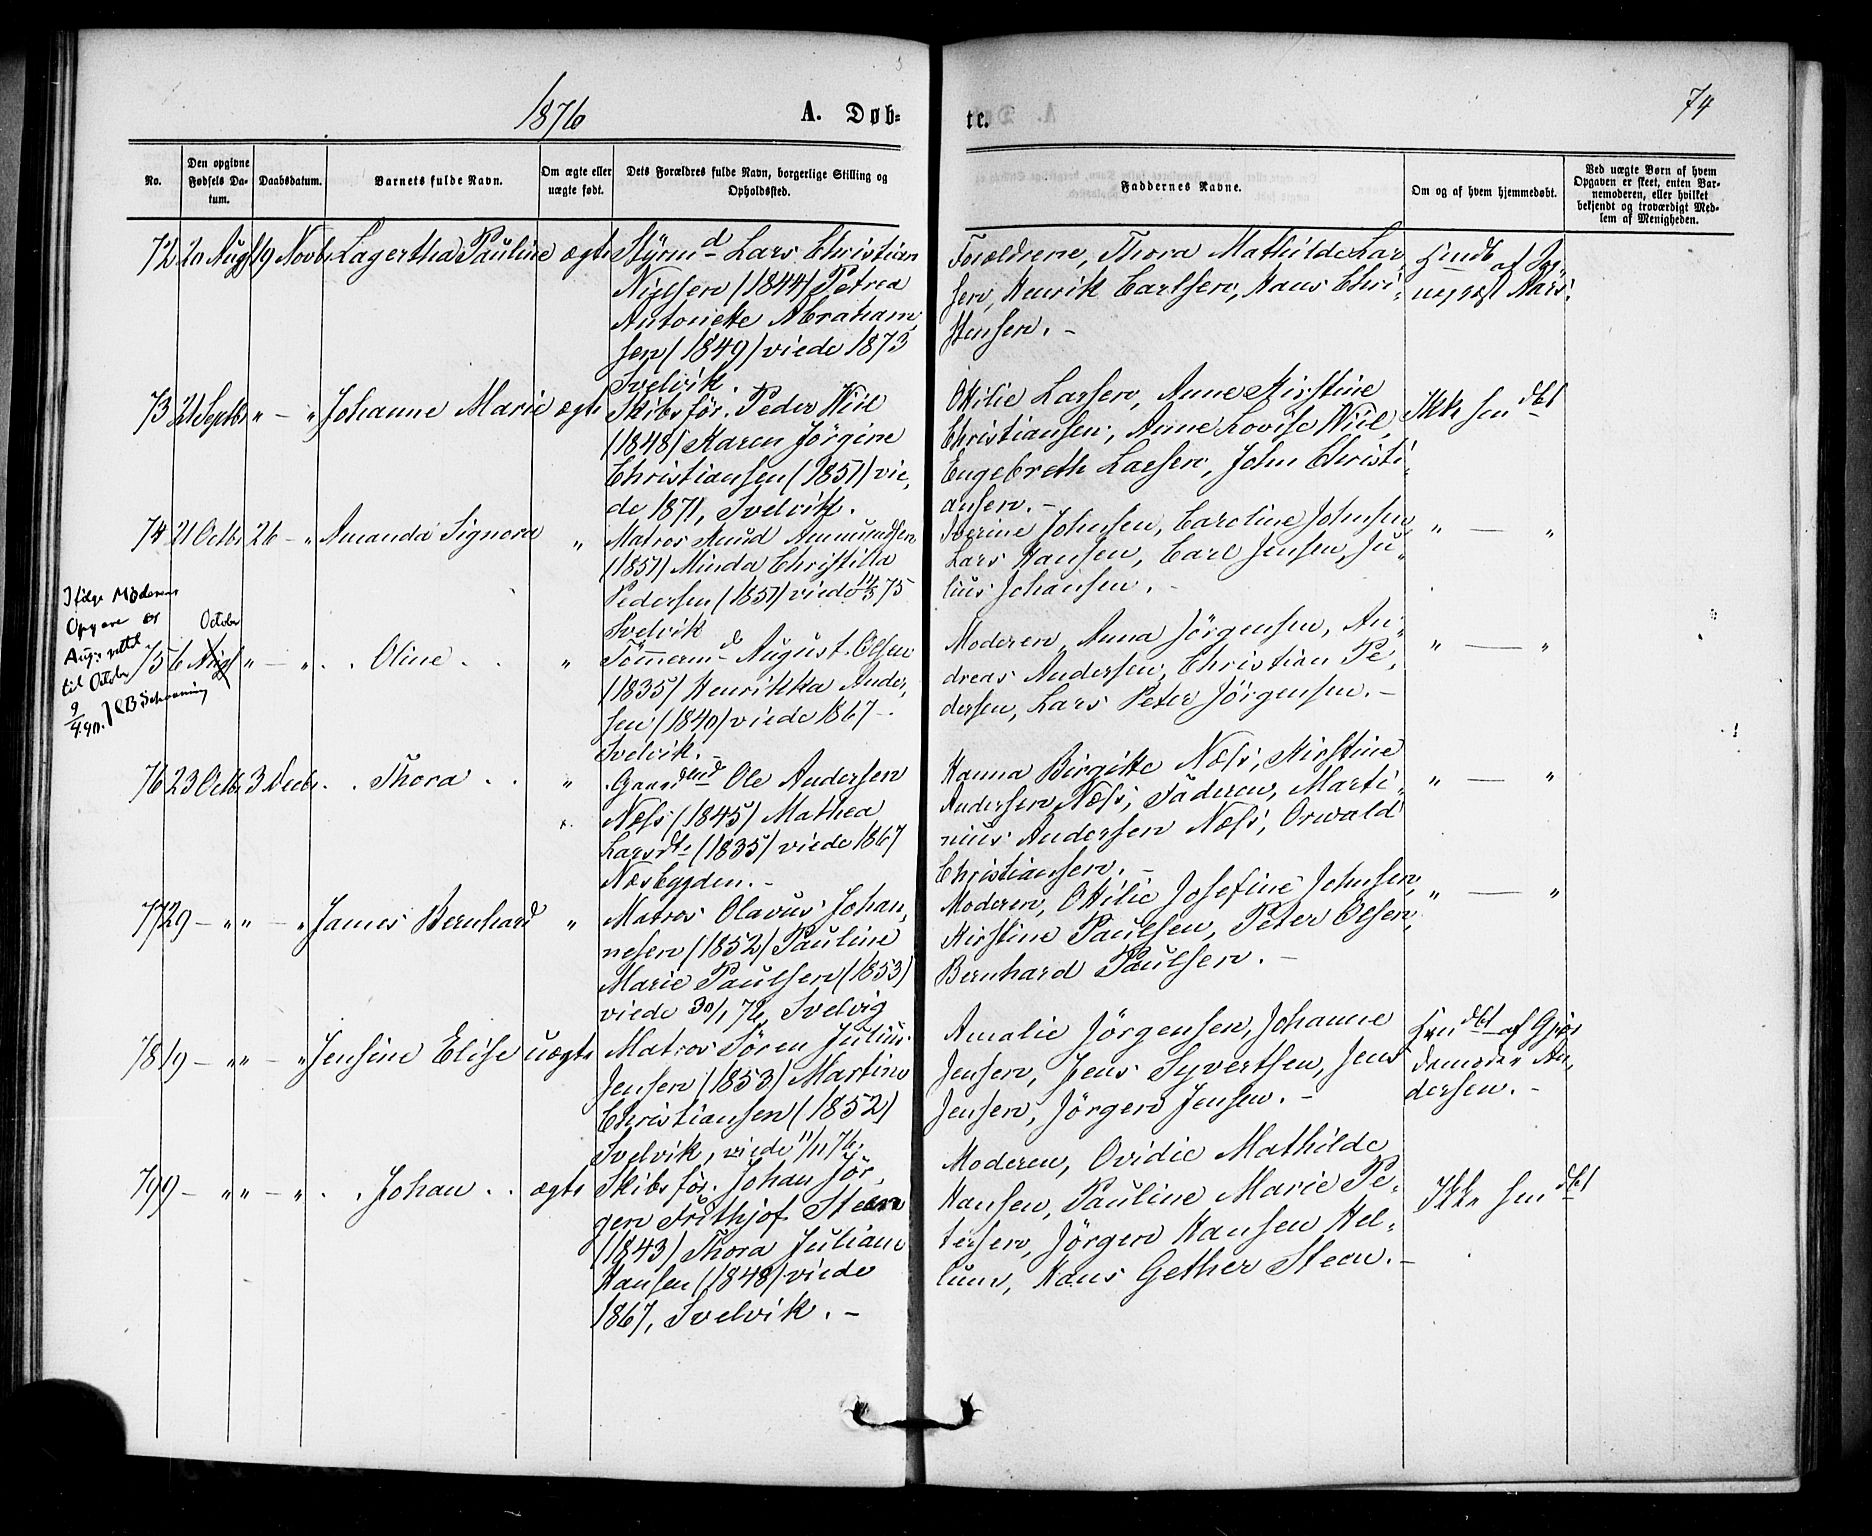 1876
A. Døb-
te.
74
No.
Den opgivne Fødsels Da-
tum.
Daabsdatum.
Barnets fulde Navn.
Om ægte eller uægte født.
Dets Forældres fulde Navn, borgerlige Stilling og
Opholdssted.
Faddernes Navne.
Om og af hvem hjemmedøbt.
Ved uægte Børn af hvem
Opgaven er skeet, enten Bar-
nemoderen, eller hvilket
bekjendt og troværdigt Med-
lem af Menigheden.
72 20 Augst 19 Novbr Lagertha Pauline ægte Styrmd Lars Christian
Nielsen (1844) Petrea
Antonette Abraham,
sen (1849) viede 1873
Svelvik.
Forældrene, Thora Mathilde Lar,
sen, Henrik Carlsen, Hans Chri,
stensen. -
73 21 Septbr " - " Johanne Marie ægte Skibsför. Peder Wiil
(1848) Karen Jörgine
Christiansen (1851) vie,
de 1871, Svelvik.
Otilie Larsen, Anne Kirstine
Christiansen, Anne Lovise Wiil,
Engebreth Larsen, John Christi,
ansen. -
Ikke hmdbt
74 21 Octbr 26 - " Amanda Signora " Matros Knud Amundsen
(1851) Minda Christilla
Pedersen (1851) viede 75
Svelvik
Iverine Johnsen, Caroline Johnsen,
Lars Hansen, Carl Jensen, Ju,
lius Johansen. -
" — "
Ifølge Moderens
Opgave er
Aug: rettet
til Octobr
9/4.90. CB Schroning
75 6 Augst October " - " . . Oline . . " Tömermd August Olsen
(1835) Henrikka Ander,
sen (1840) viede 1867 -
Svelvik. -
Moderen, Anna Jörgensen, An,
dreas Andersen, Christian Pe,
dersen, Lars Peter Jörgensen. -
" — "
76 23 Octbr 3 Decbr . . Thora . . " Gaard Ole Andersen
Næss (1845) Mathea
Larsdt. (1835) viede 1867
Næsbygden. -
Hanna Birgitte Næss, Kirstine
Andersen Næss, Faderen, Marti,
nius Andersen Næss, Orwald
Christiansen. -
" — "
77 29 - " " - " James Bernhard " Matros Olavus Johan,
nesen (1852) Pauline
Marie Paulsen (1853)
viede 30/1 76, Svelvig
Moderen, Otilie Josefine Johnsen,
Kirstine Paulsen, Peter Olsen,
Bernhard Paulsen. -
" — "
78 19 - " " - " Jensine Elise uægte Matros Sören Julius
Jensen (1853) Martine
Christiansen (1852)
Svelvik, viede 11/11 76.
Amalie Jörgensen, Johanne
Jensen, Jens Syvertsen, Jens
Jensen, Jörgen Jensen. -
hmdbt af Gjor
demoder An,
dersen. -
79 9 - " " - " . . Johan . . ægte Skibsför. Johan Jör,
gen Frithjof Steen
(1843) Thora Juliane
Hansen (1848) viede
1867, Svelvik. -
Moderen, Ovidie Mathilde
Hansen, Pauline Marie Pe,
tersen, Jörgen Hansen Hel,
lum, Hans Gether Steen. -
Ikke hmdbt